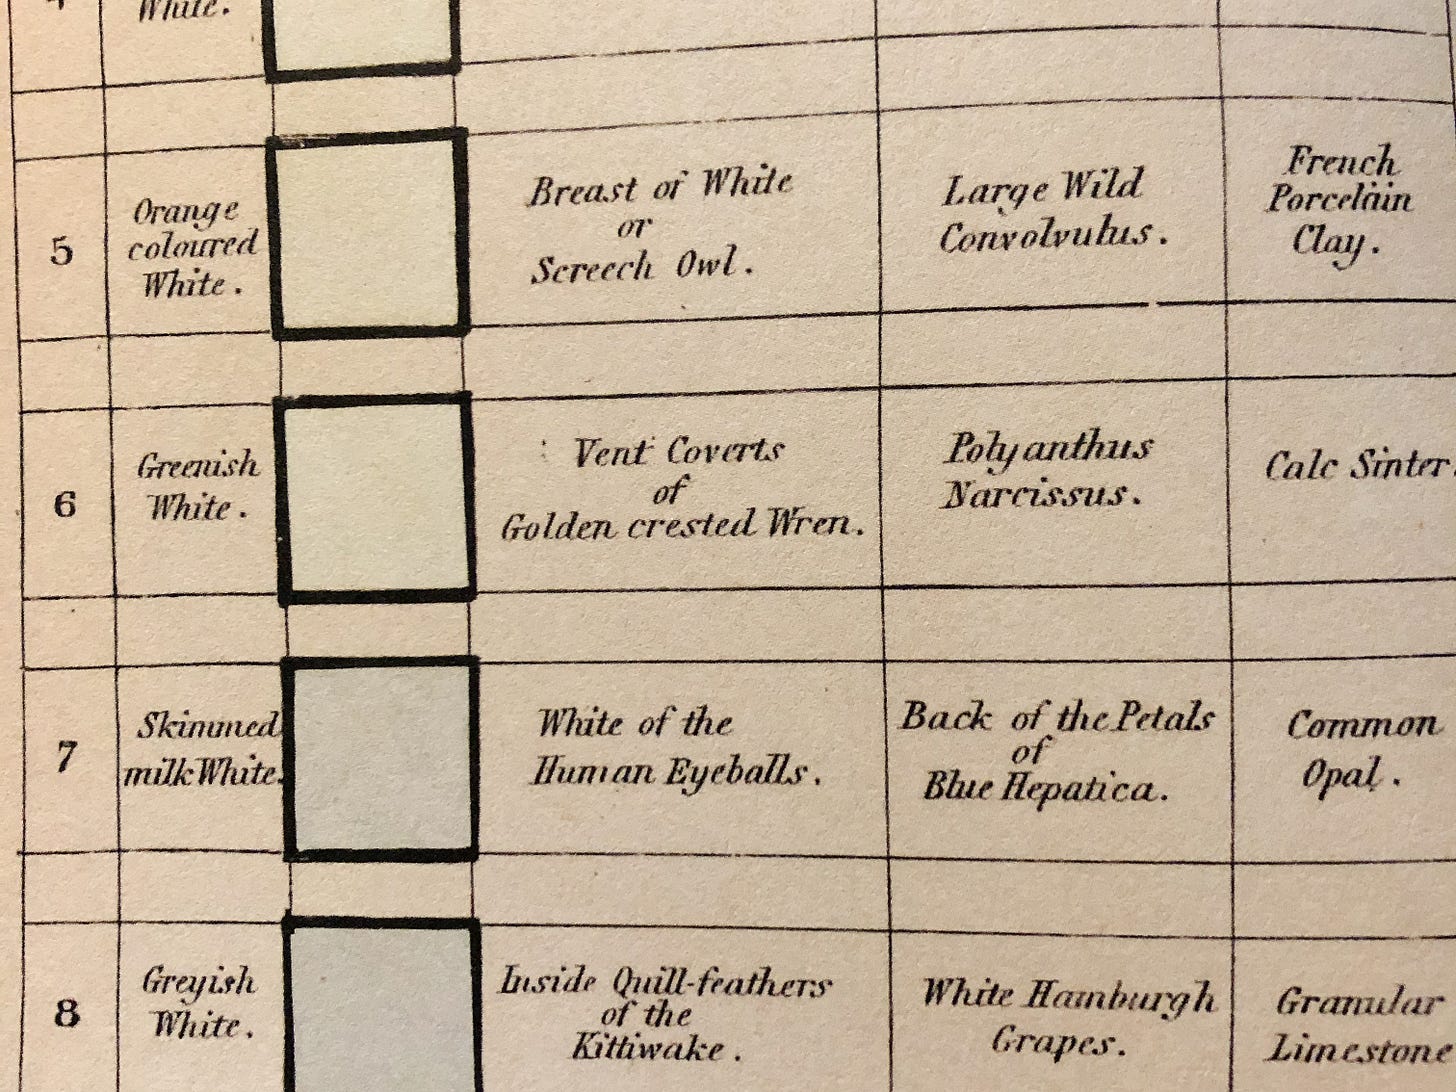 White.
5
Orange
coloured
White.
Breast of White
or
Screech Owl.
Large Wild
Convolvulus.
French
Porcelain
Clay.
6
Greenish
White.
Vent Coverts
of
Golden crested Wren.
Polyanthus
Narcissus.
Calc Sinter.
7
Skimmed
milk White.
White of the
Human Eyeballs.
Back of the Petals
of
Blue Hepatica.
Common
Opal.
8
Greyish
White.
Inside Quill-feathers
of the
Kittiwake.
White Hamburgh
Grapes.
Granular
Limestone